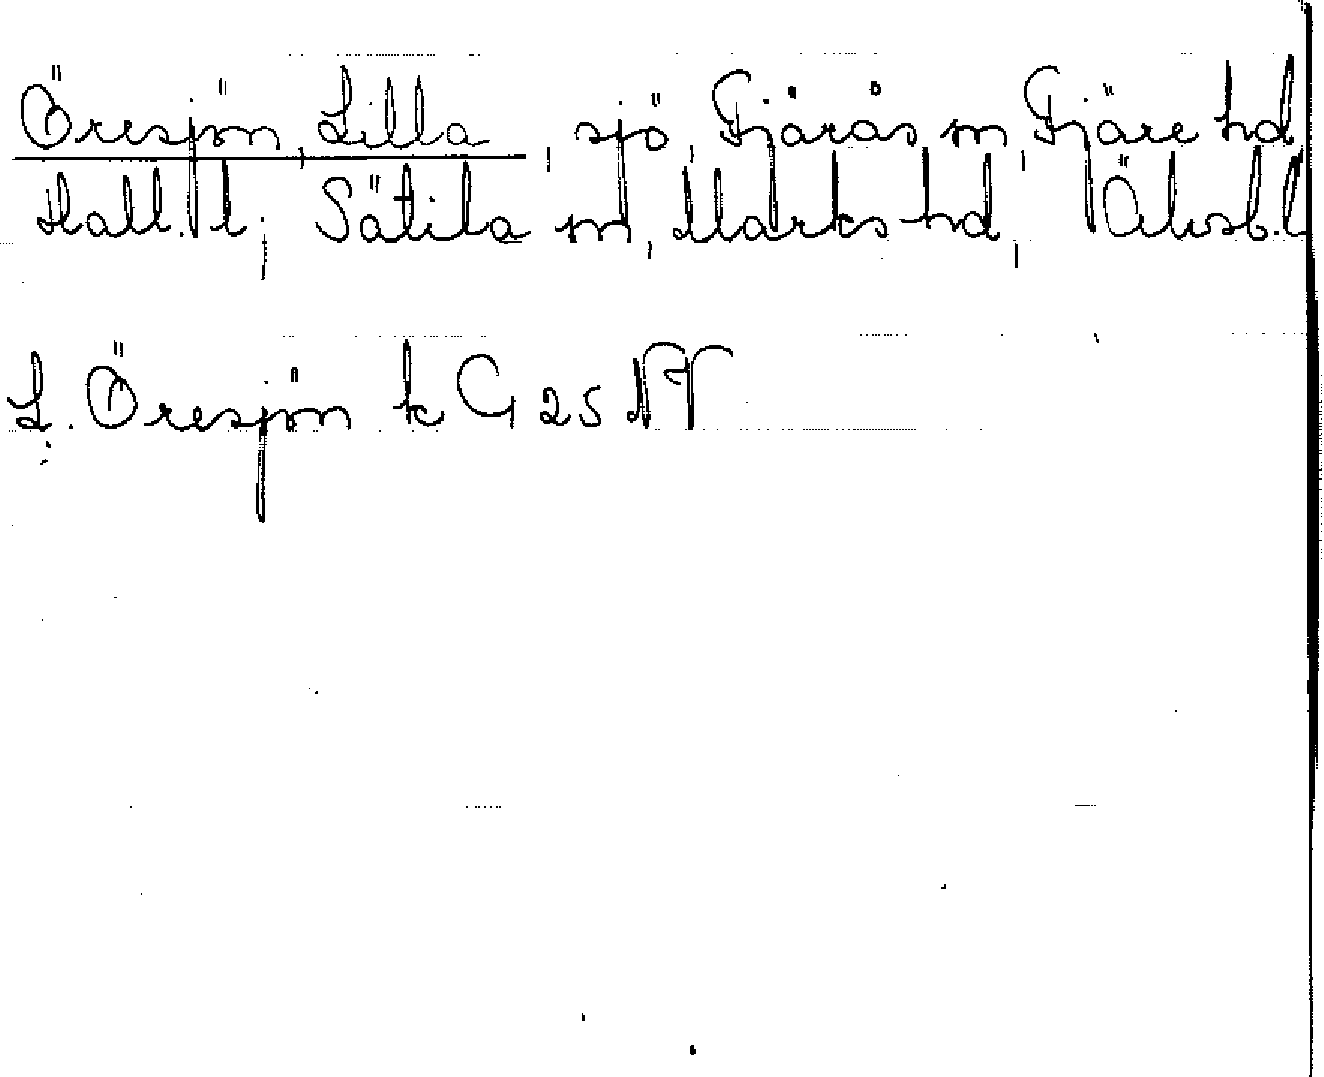 Öresjön, Lilla, sjö, Fjärås sn, Fjäre hd,
Hall. l; Sätila sn, Marks hd, Älvsb. l
L. Öresjön k G 25 NV